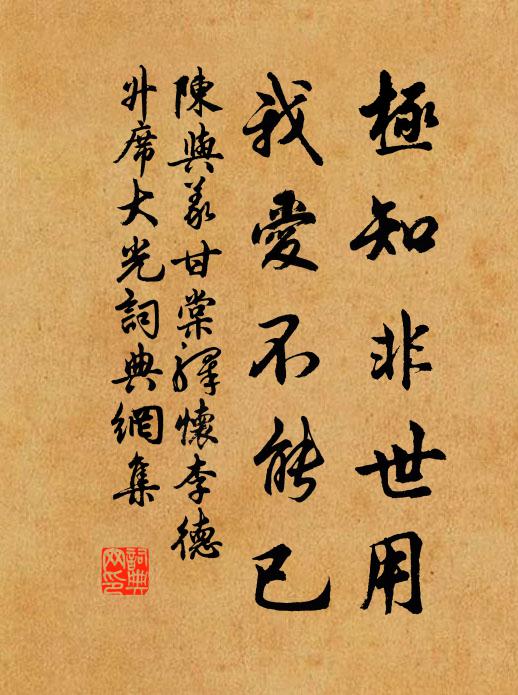 極知非世用
我愛不能已
陳與義甘棠驛懷李德
升席大光詞典網集
詞典
网印